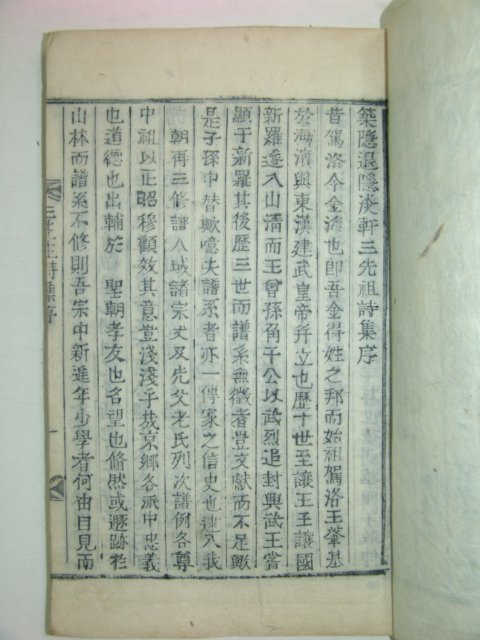 築隱退隱淺軒三先祖詩集序
昔駕洛今金海也卽吾金得姓之邦而始祖駕洛王肇基
於海濱與東漢建武皇帝幷立也歷十世至讓王王讓國
新羅遂入山淸而王曾孫角干公以武烈追封興武王嘗
顯于新羅其後歷三世而譜系無徵者豈文獻而不足歟
是子孫中替歟噫夫譜系者亦一傳家之信史也逮入我
朝再三修譜八域諸宗丈及先父老氏列次譜例各尊
中祖以正昭穆顧效其意豈淺淺乎哉京鄕各派中忠義
也道德也出輔於 聖朝孝友也名望也脩然或遯跡於
山林而譜系不修則吾宗中新進年少學者何由目見而
三先生詩集序
一